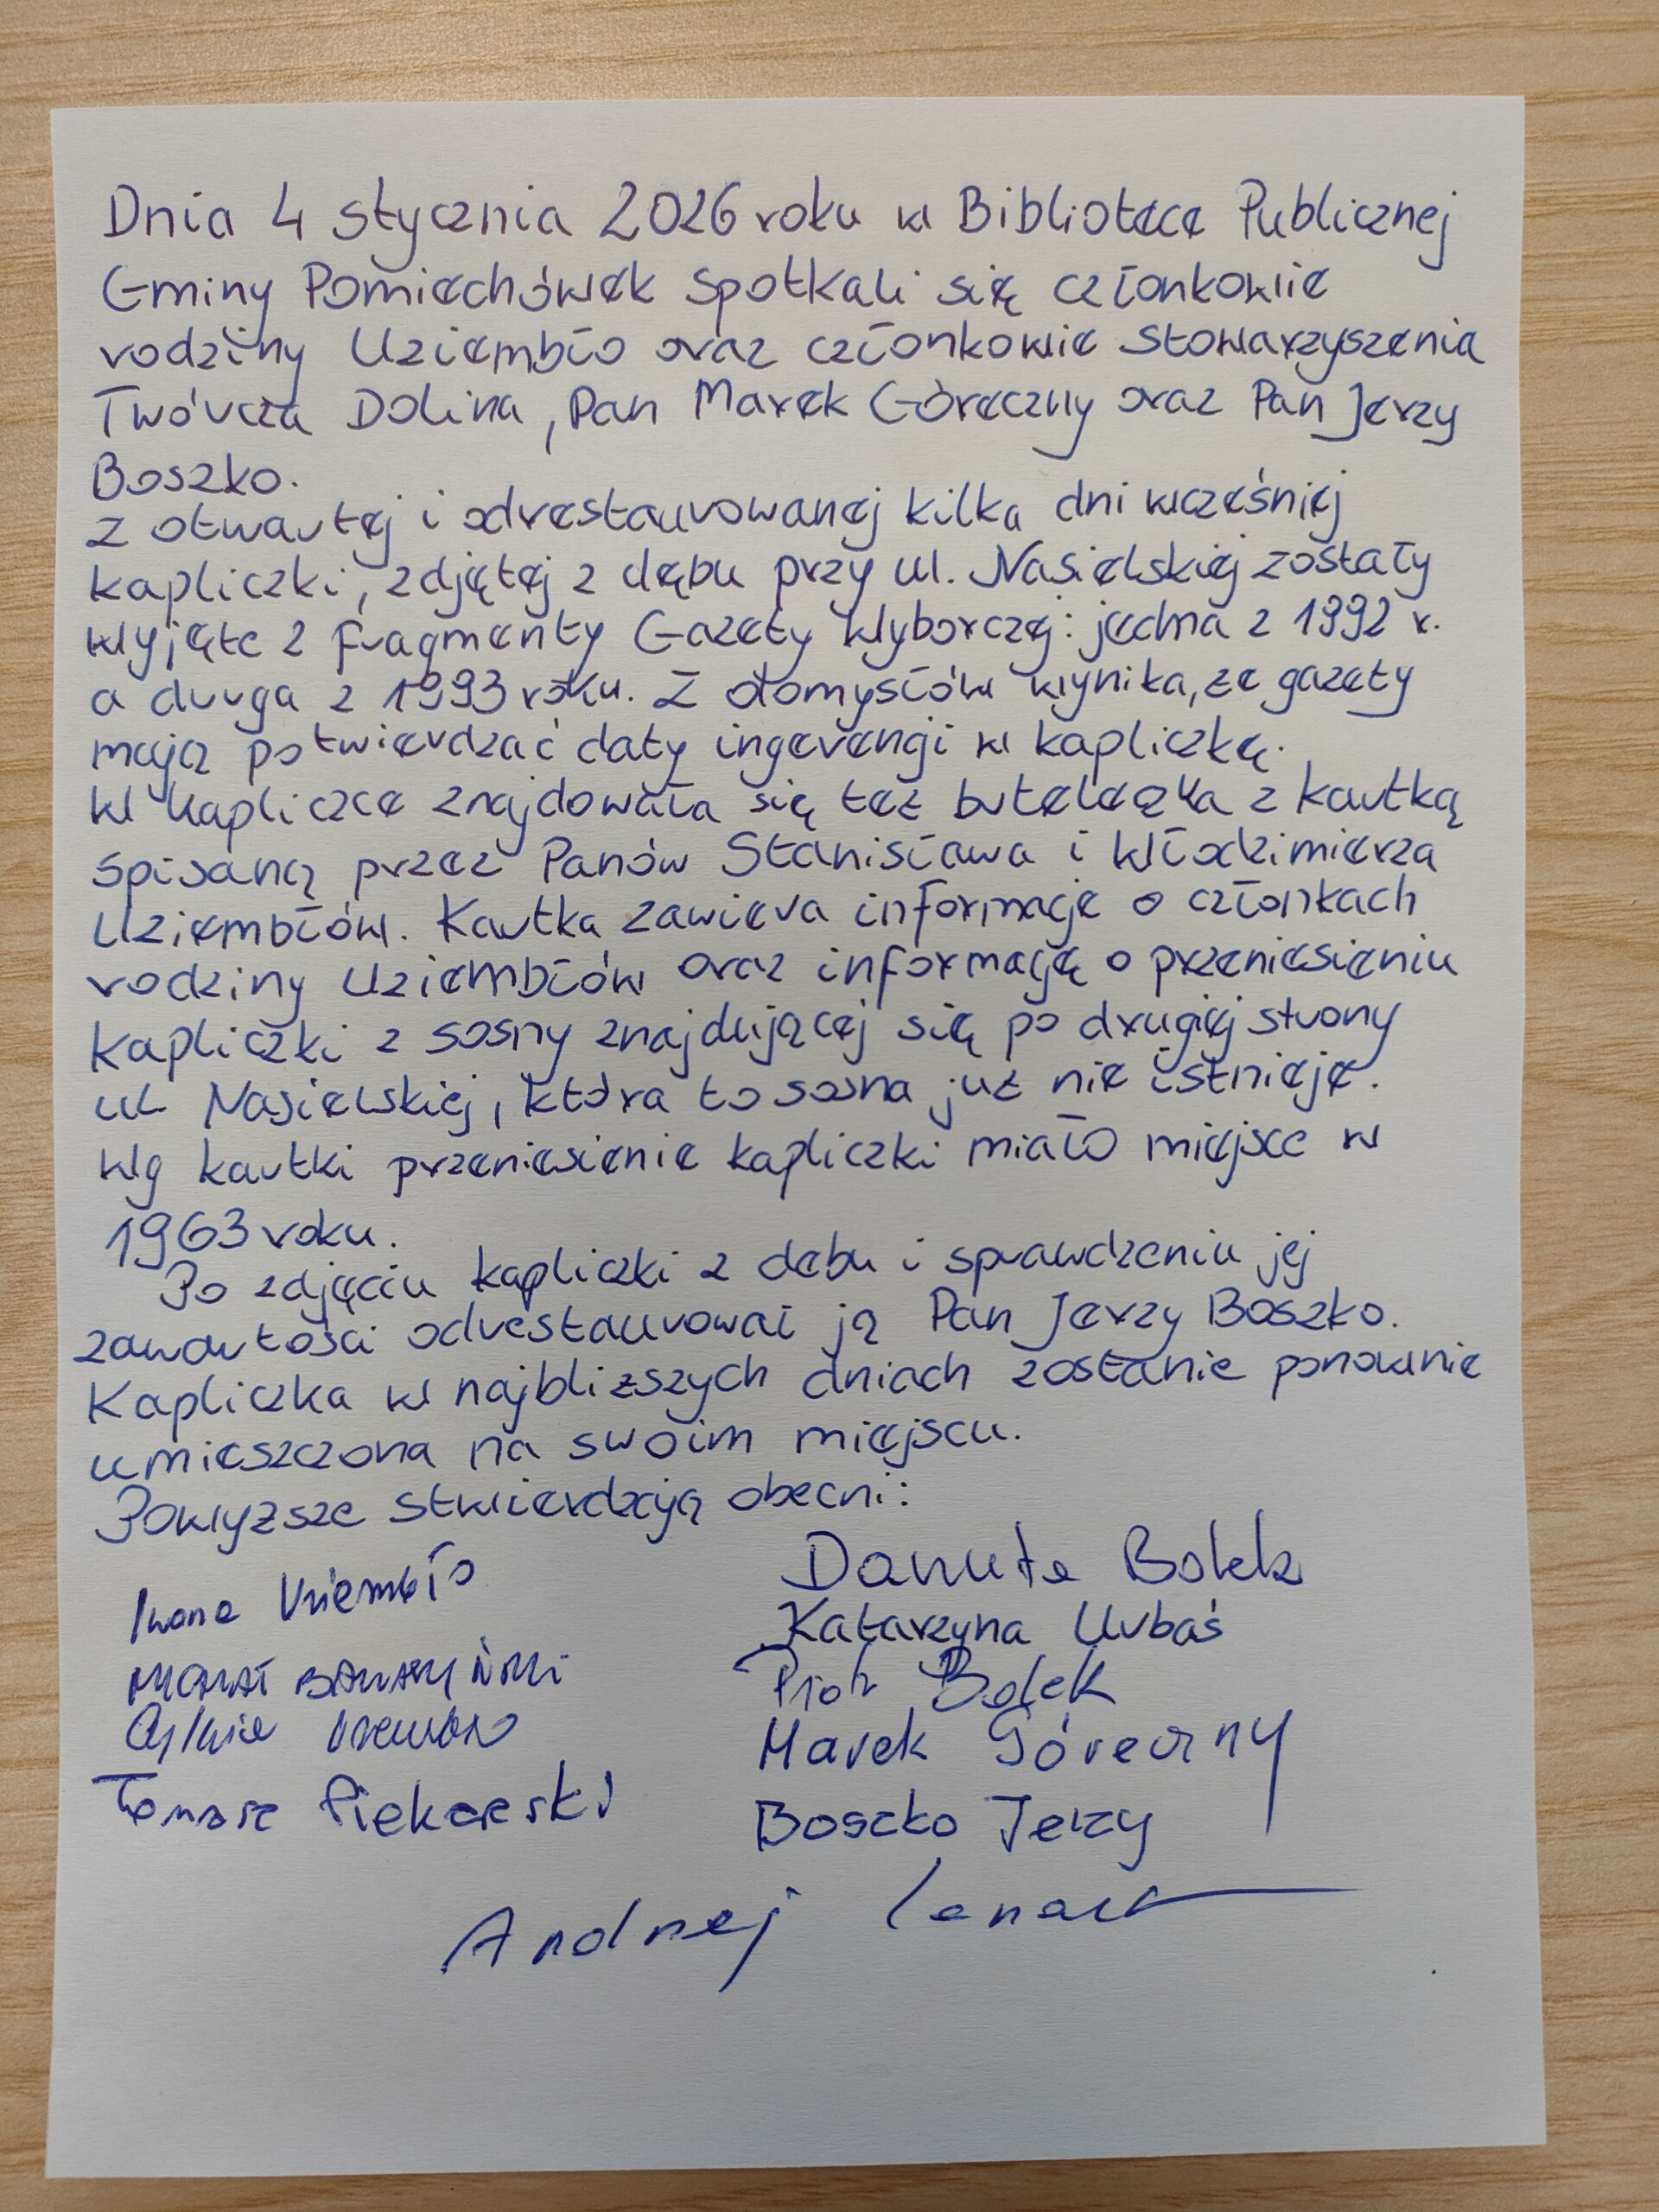 Dnia 4 stycznia 2026 roku w Bibliotece Publicznej
Gminy Pomiechówek spotkali się członkowie
rodziny Uziembło oraz członkowie stowarzyszenia
Twórcza Dolina, Pan Marek Góreczny oraz Pan Jerzy
Boszko.
Z otwartej i odrestaurowanej kilka dni wcześniej
kapliczki, zdjętej z dębu przy ul. Nasielskiej zostały
wyjęte 2 fragmenty Gazety Wyborczej: jedna z 1992 r.
a druga z 1993 roku. Z domysłów wynika, że gazety
mają potwierdzać daty ingerencji w kapliczkę.
W kapliczce znajdowała się też buteleczka z kartką
spisaną przez Panów Stanisława i Włodzimierza
Uziembłów. Kartka zawiera informacje o członkach
rodziny Uziembłów oraz informację o przeniesieniu
kapliczki z sosny znajdującej się po drugiej strony
ul. Nasielskiej, która to sosna już nie istnieje.
Wg kartki przeniesienie kapliczki miało miejsce w
1963 roku.
Po zdjęciu kapliczki z dębu i sprawdzeniu jej
zawartości odrestaurował ją Pan Jerzy Boszko.
Kapliczka w najbliższych dniach zostanie ponownie
umieszczona na swoim miejscu.
Powyższe stwierdzają obecni:
Iwona Uziembło
Danuta Bolek
Katarzyna Urbaś
Michał
Piotr Bolek
Marek Góreczny
Tomasz Piekarski
Boszko Jerzy
Andrzej Lenart